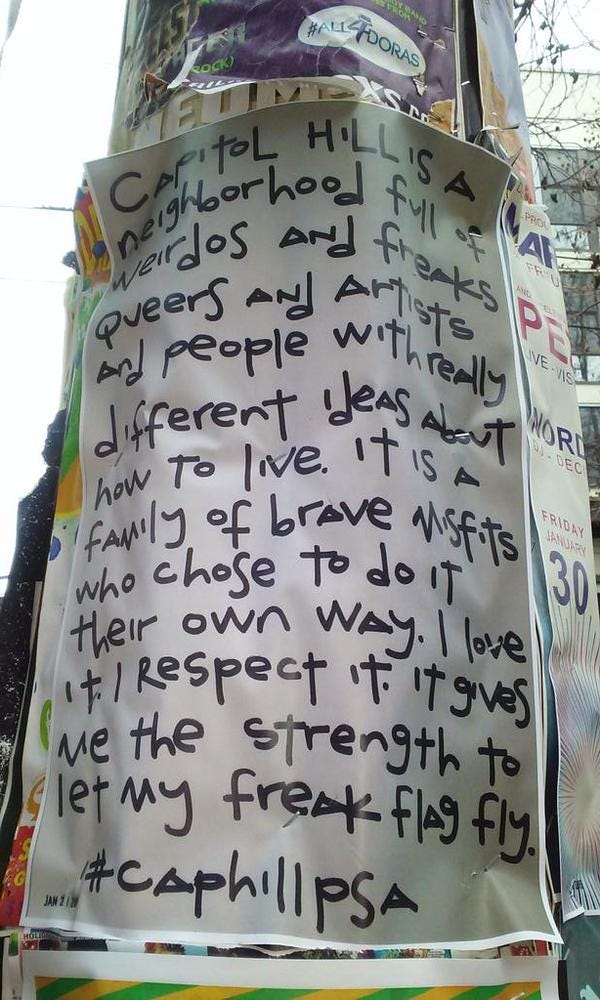 #ALL4DORAS
ROCK)
NEUMOXS
CAPITOL HILL IS A
neighborhood full of
weirdos and freaks
Queers and Artists
and people with really
different ideas about
how to live. IT IS A
family of brave misfits
who chose to do it
their own way. I love
it. I Respect it. it gives
me the strength to
let my freak flag fly.
#caphillpsa
JAN 2
MAR
PE
LIVE - VIS
WORD
DJ - DEC
FRIDAY
JANUARY
30